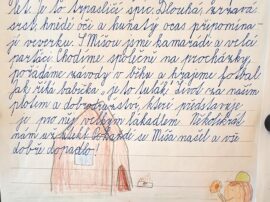 let. Je to trpasličí špic. Dlouhá, zrzavá
srst, hnědé oči a huňatý ocas připomína-
jí veverku. S Míšou jsme kamarádi a velcí
parťáci. Chodíme společně na procházky,
pořádáme závody v běhu a hrajeme fotbal
jak říká babička, je to tulák. Život za naším
plotem a dobrodružství, které představuje
je pro něj velkým lákadlem. Několikrát
nám utekl. Pokaždé se Míša našel a vše
dobře dopadlo!